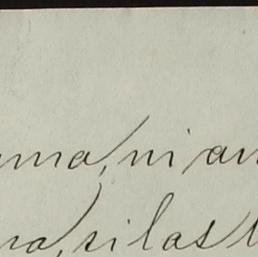 ama, ni an
na, silast